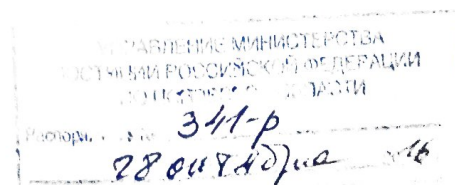 УПРАВЛЕНИЕ МИНИСТЕРСТВА
ЮСТИЦИИ РОССИЙСКОЙ ФЕДЕРАЦИИ
ПО ОБЛАСТИ
341-р
28 октября 16